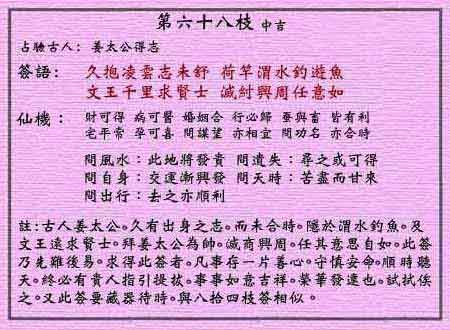 第六十八枝 中吉
占驗古人：姜太公得志
簽語：久抱凌雲志未舒 荷竿渭水釣遊魚
文王千里求賢士 滅紂興周任意如
仙機：財可得 病可醫 婚姻合 行必歸 蠶與畜 皆有利
宅平常 孕可喜 問謀望 亦相宜 問功名 亦合時
問風水：此地將發貴 問遺失：尋之或可得
問自身：交運漸興發 問天時：苦盡而甘來
問出行：去之亦順利
註：古人姜太公。久有出身之志。而未合時。隱於渭水釣魚。及
文王遠求賢士。拜姜太公為帥。滅商興周。任其意思自如。此簽
乃先難後易。求得此簽者。凡事存一片善心。守慎安命。順時聽
天。終必有貴人指引提拔。事事如意吉祥。榮華發達也。試拭俟
之。又此簽要藏器待時。與八拾四枝簽相似。